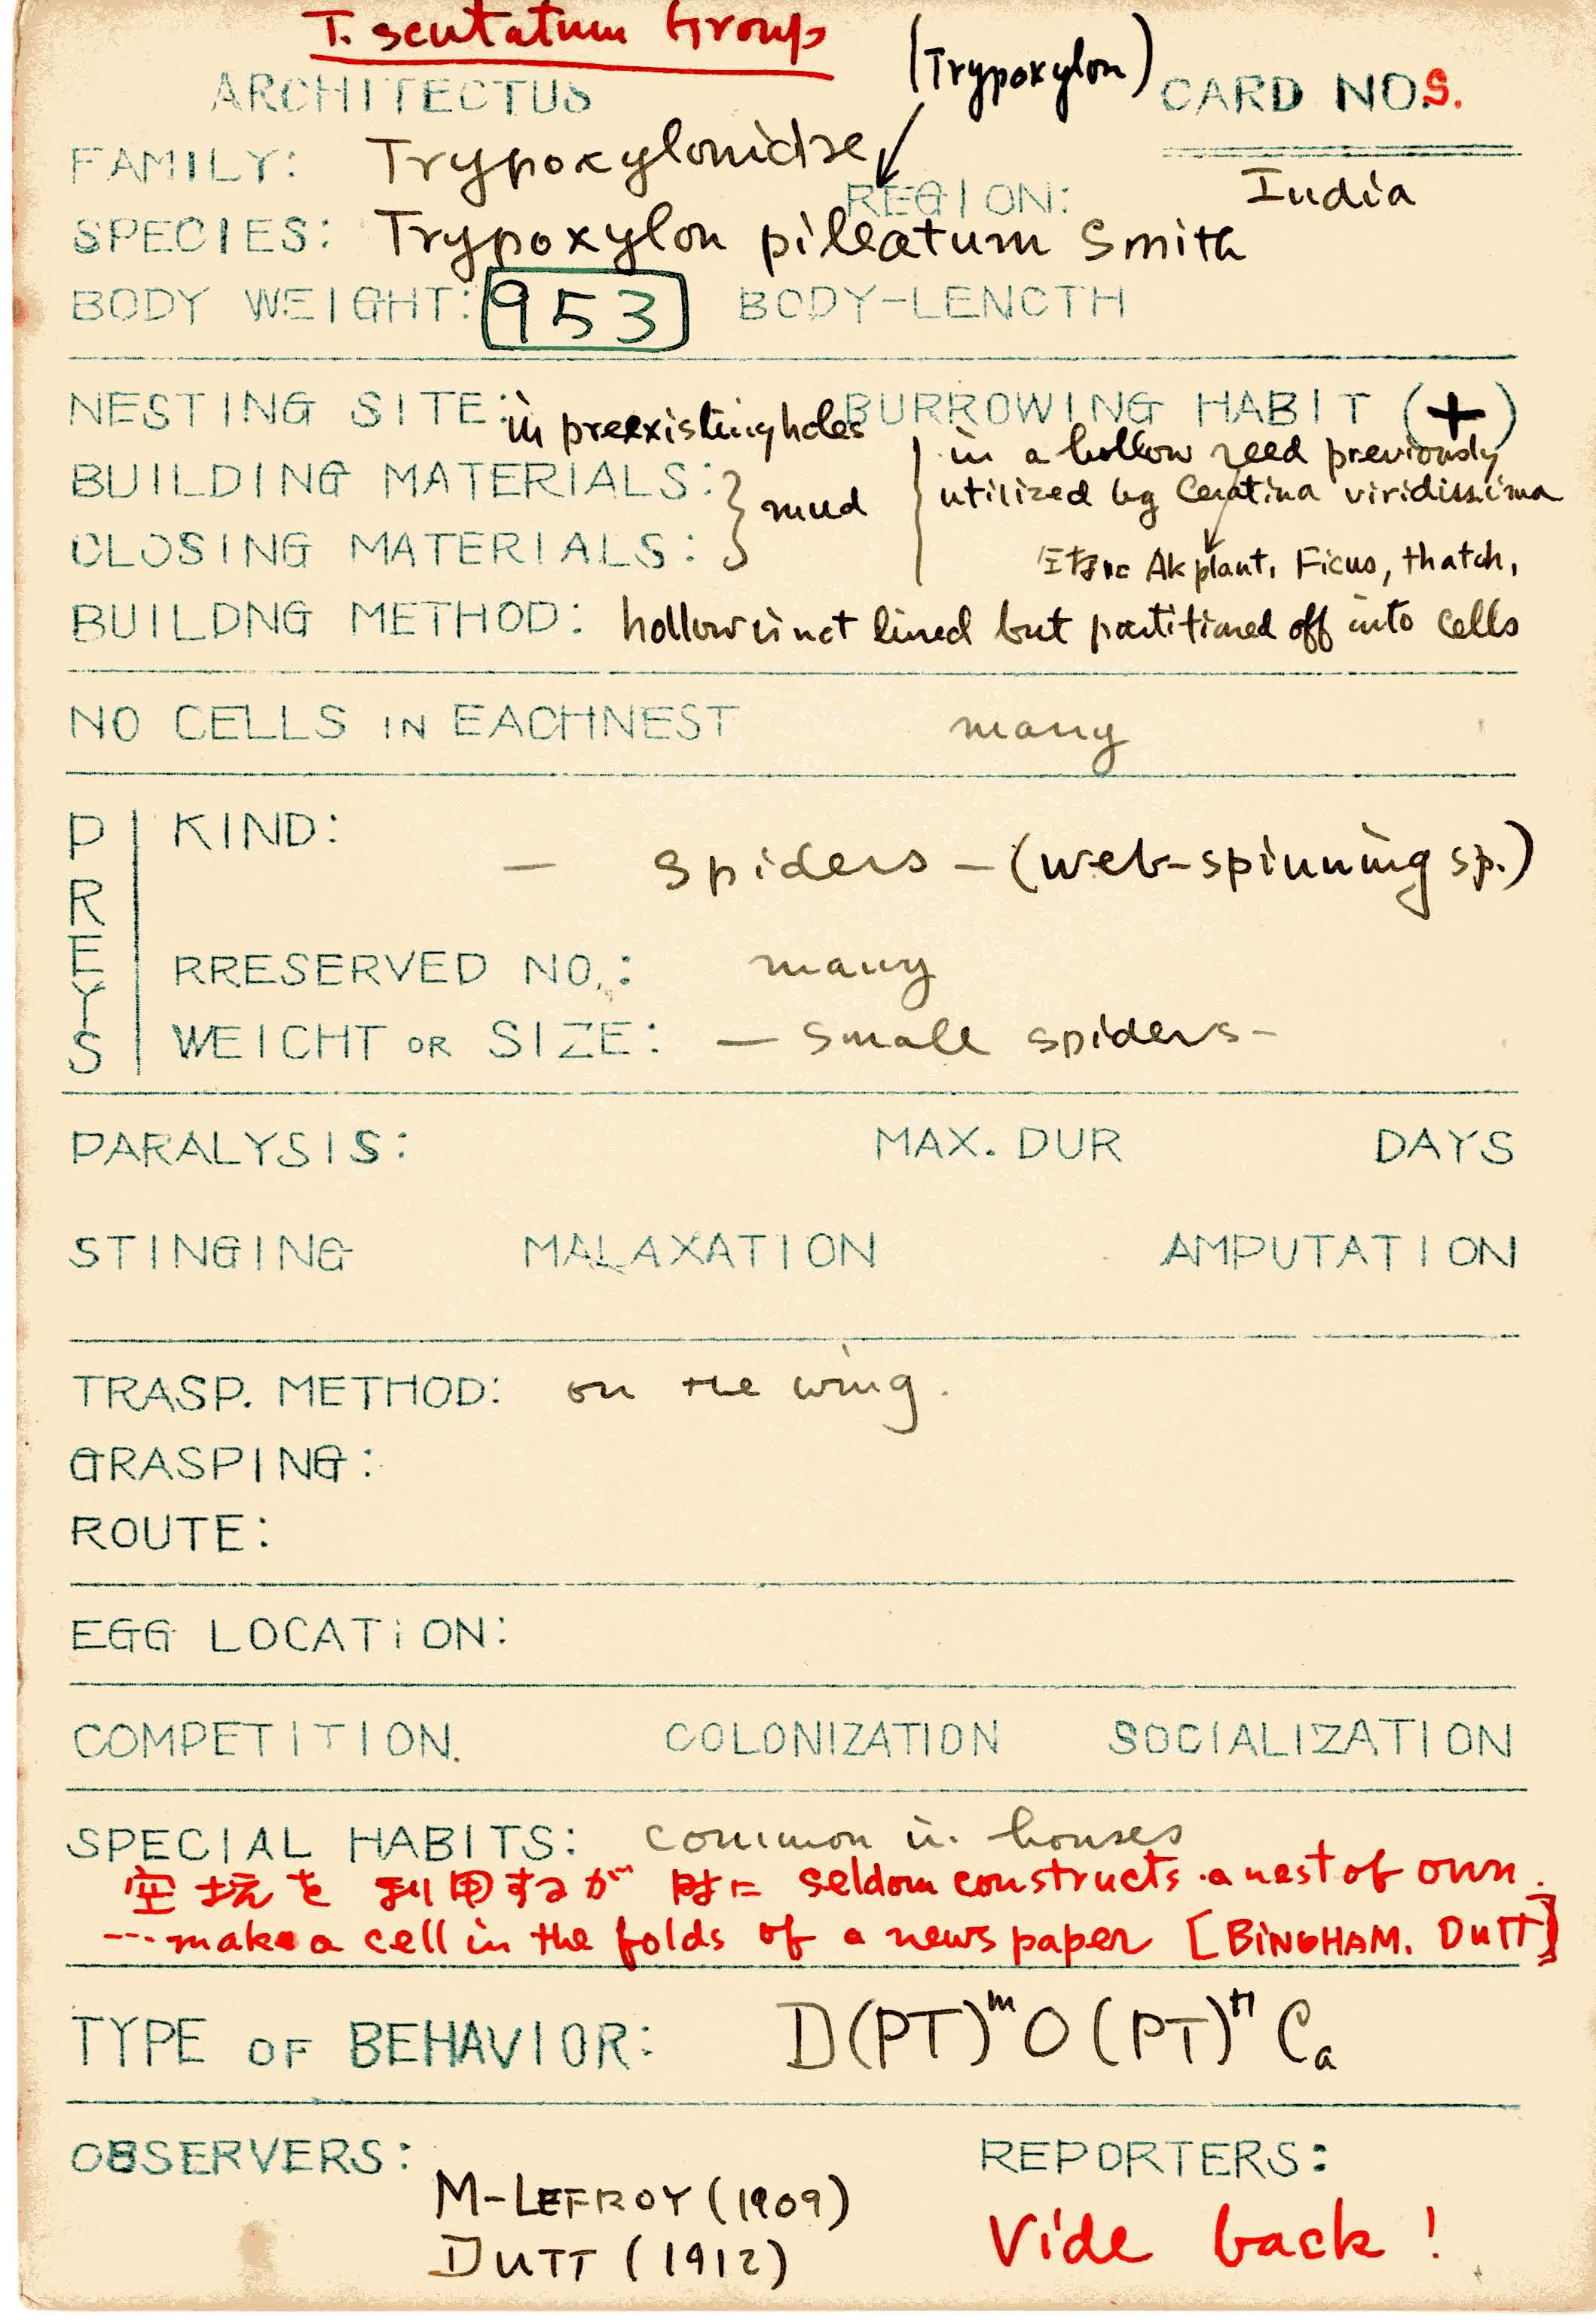 T. scutatum Group
(Trypoxylon)
ARCHITECTUS CARD NO.S.
FAMILY: Trypoxylonidae
REGION: India
SPECIES: Trypoxylon pileatum Smith
BODY WEIGHT: 953 BODY-LENGTH
NESTING SITE: in preexisting holes BURROWING HABIT (+)
in a hollow reed previously
BUILDING MATERIALS: } mud utilized by Ceratina viridissima
CLOSING MATERIALS: Ak plant, Ficus, thatch,
BUILDNG METHOD: hollow is not lined but partitioned off into cells
NO CELLS IN EACHNEST many
PREYS
KIND: — spiders — (web-spinning sp.)
RRESERVED NO.: many
WEIGHT OR SIZE: — small spiders-
PARALYSIS: MAX. DUR DAYS
STINGING MALAXATION AMPUTATION
TRASP. METHOD: on the wing.
GRASPING:
ROUTE:
EGG LOCATION:
COMPETITION. COLONIZATION SOCIALIZATION
SPECIAL HABITS: common in houses
空坑を利用するが 時に seldom constructs a nest of own.
---make a cell in the folds of a news paper [BINGHAM. DUTT]
TYPE OF BEHAVIOR: D(PT)ᵐO(PT)ⁿCₐ
OBSERVERS: REPORTERS:
M-LEFROY (1909)
DUTT (1912) Vide back!